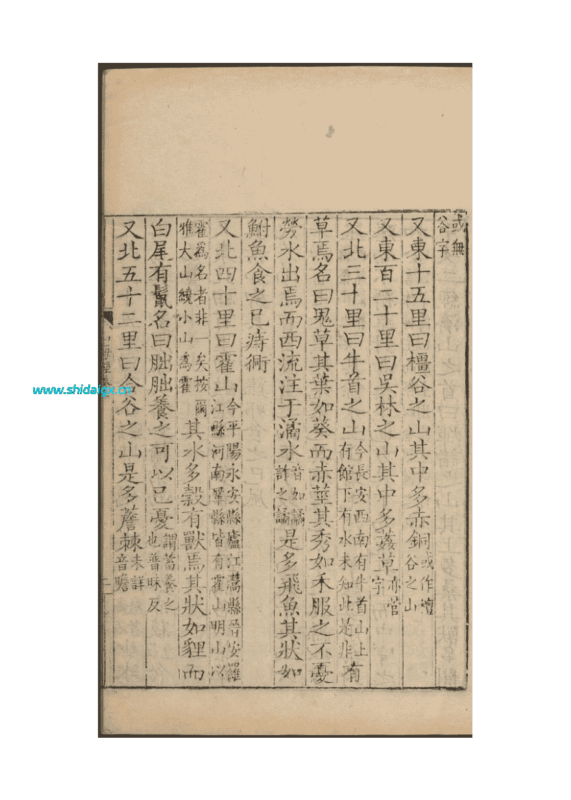 或無
谷字
又東十五里曰橿谷之山其中多赤銅或作檀
谷之山
又東百二十里曰吳林之山其中多葌草亦菅
字
又北三十里曰牛首之山今長安西南有牛首山上
有館下有水未知此是非有
草焉名曰鬼草其葉如葵而赤莖其秀如禾服之不憂
勞水出焉而西流注于潏水音如譎
詐之譎是多飛魚其狀如
鮒魚食之已痔衕
又北四十里曰霍山今平陽永安縣廬江灊縣晉安羅
江縣河南鞏縣皆有霍山明山以
霍為名者非一矣按爾
雅大山繞小山為霍其水多榖有獸焉其狀如貍而
白尾有鬣名曰朏朏養之可以已憂謂蓄養之
也普昧反
又北五十二里曰合谷之山是多薝棘未詳
音瞻
www.shidaigx.cn